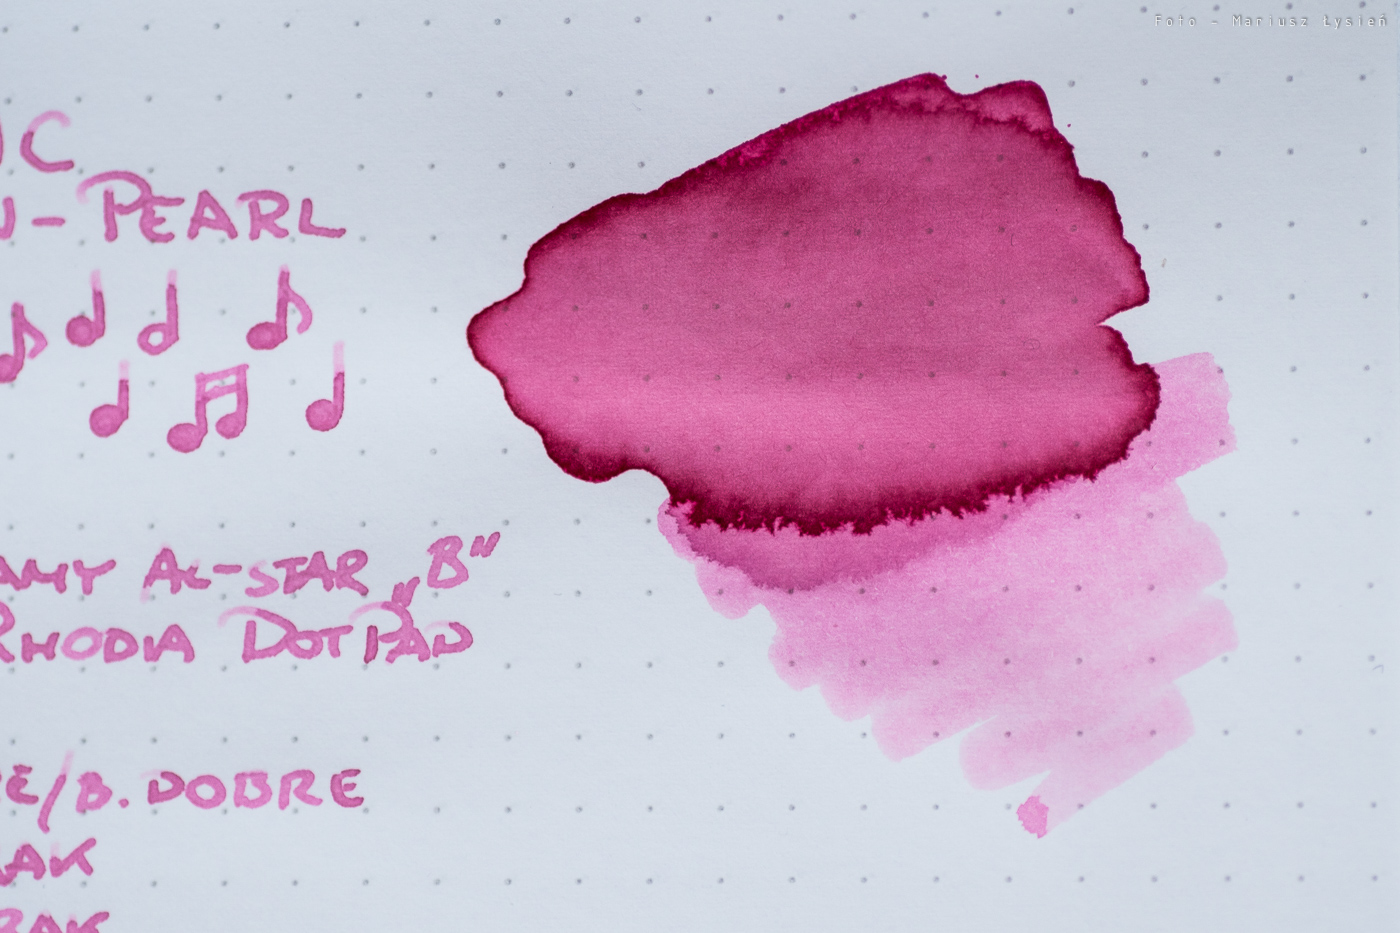 Foto - Mariusz Łysień
C
- PEARL
AL-STAR „B”
RHODIA DOTPAD
/B. DOBRE